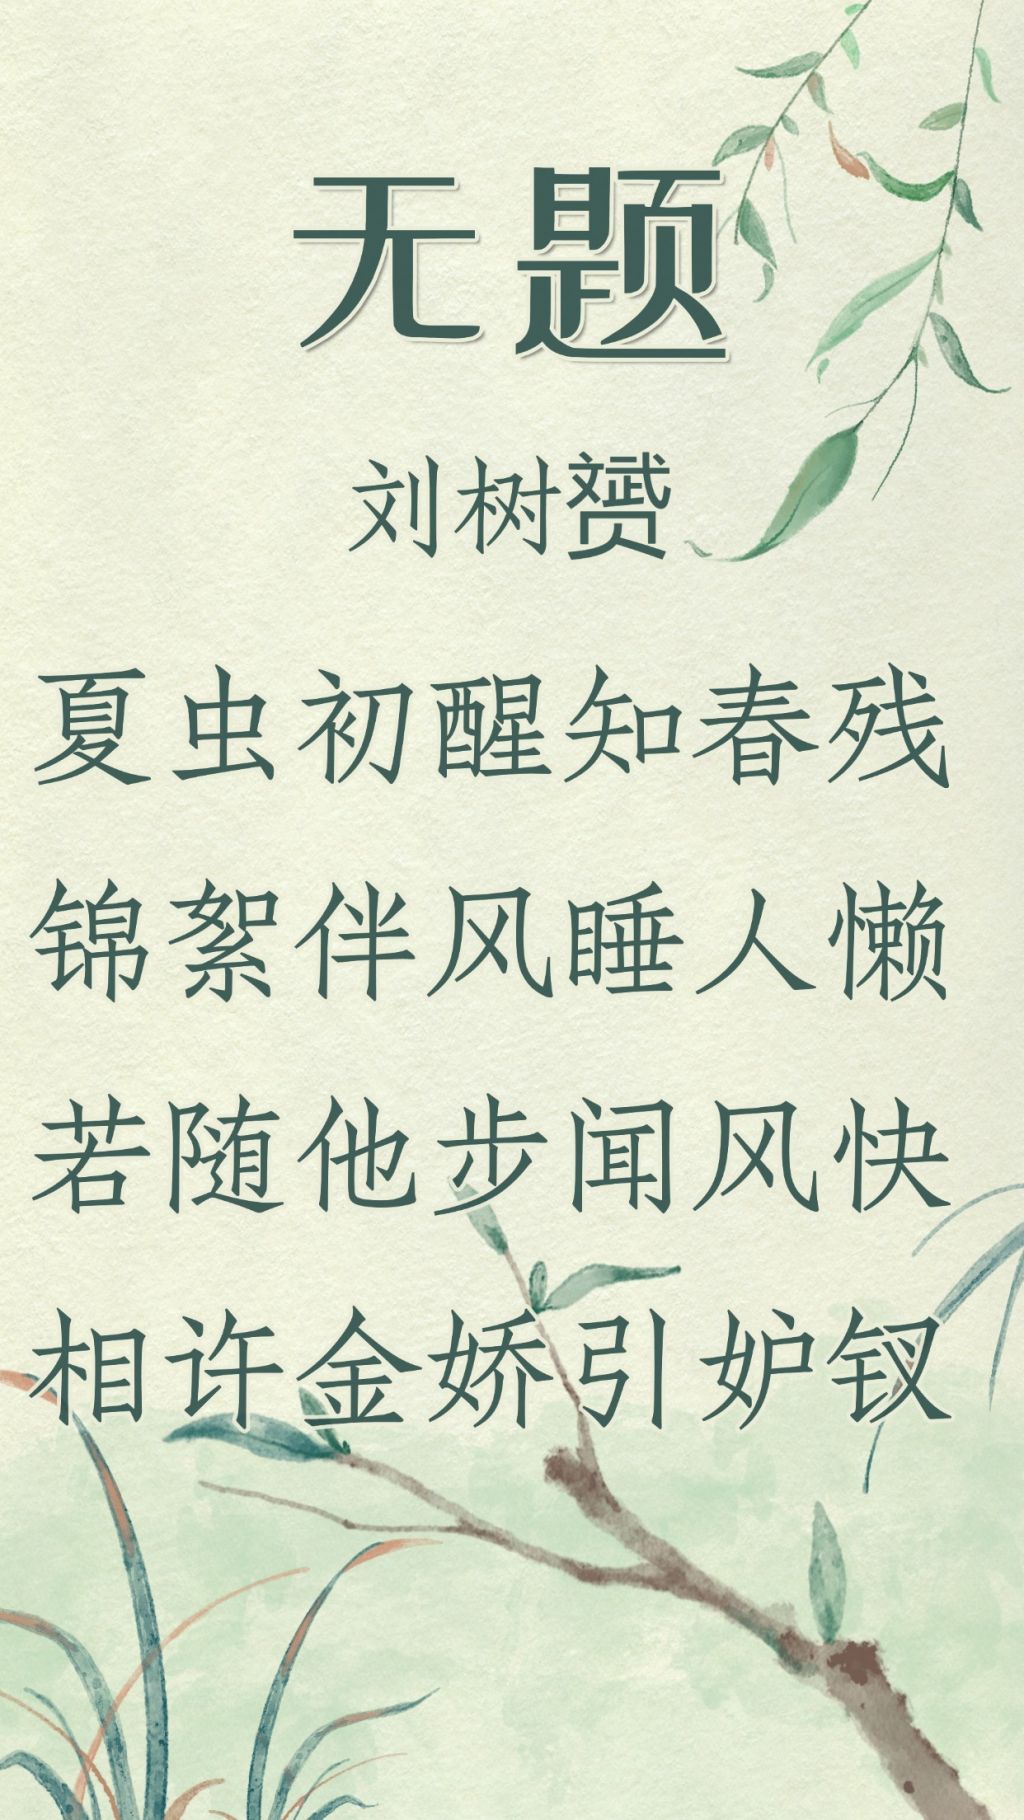 无题
刘树赟
夏虫初醒知春残
锦絮伴风睡人懒
若随他步闻风快
相许金娇引妒钗